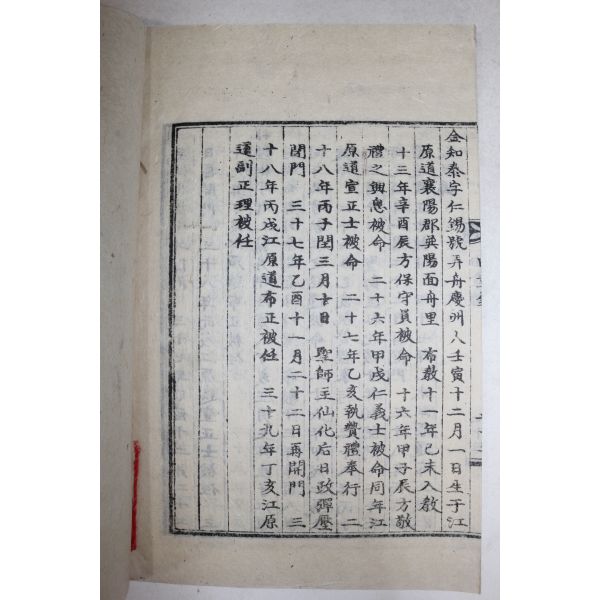 金知泰字仁錫號弄舟慶明人壬寅十二月一日生于江
原道襄陽郡巽陽面舟里 布敎十一年己未入敎
十三年辛酉辰方保守員被命 十六年甲子辰方敬
禮之興息被命 二十六年甲戌仁義士被命同年江
原道宣正士被命 二十七年乙亥執贊禮奉行 二
十八年丙子閏三月十日 聖師主仙化后日政彈壓
閉門 三十七年乙酉十一月二十二日再開門 三
十八年丙戌江原道布正被任 三十九年丁亥江原
道副正理被任